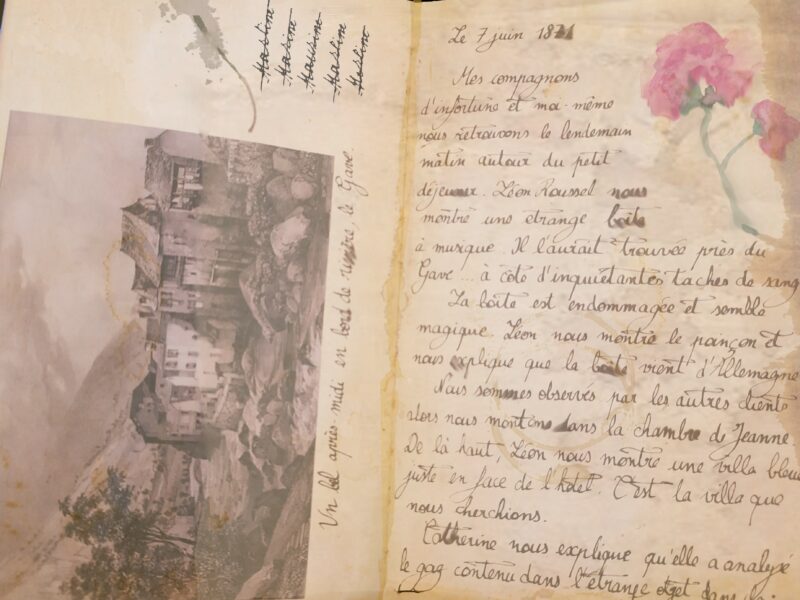 Un bel après-midi en bord de rivière, le Gave.
Le 7 juin 1871
Mes compagnons
d'infortune et moi-même
nous retrouvons le lendemain
matin autour du petit
déjeuner. Léon Roussel nous
montre une etrange boîte
à musique. Il l'aurait trouvée près du
Gave... à côté d'inquiétantes taches de sang
La boîte est endommagée et semble
magique. Léon nous montre le poinçon et
nous explique que la boîte vient d'Allemagne
Nous sommes observés par les autres clients
alors nous montons dans la chambre de Jeanne.
De là haut, Léon nous montre une villa bleue
juste en face de l'hotel. C'est la villa que
nous cherchions.
Catherine nous explique qu'elle a analysé
le gag contenu dans l'étrange objet dans